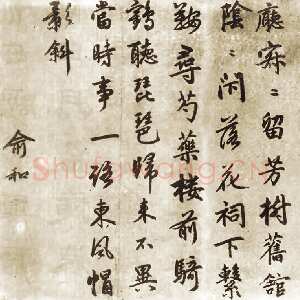 廳寂〻留芳樹舊館
陰〻閑落花祠下繫
鞍尋芍藥樓前騎
鶴聽琵琶歸来不異
當時事一路東風帽
影斜
俞和